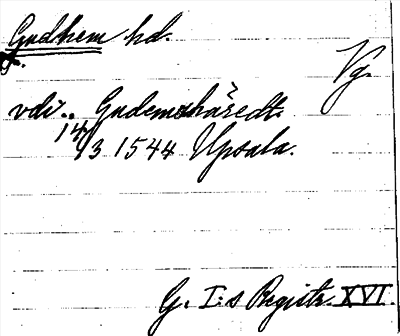 Gudhem hd.
Vg.
vdr.. Gudemshäredt.
14/3 1544 Upsala.
G. I:s Registr. XVI.